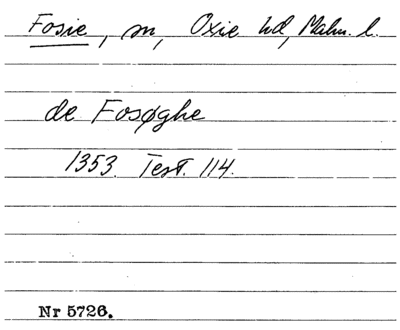 Fosie, sn, Oxie hd, Malm. l.
de Fosøghe
1353. Test. 114.
Nr 5726.